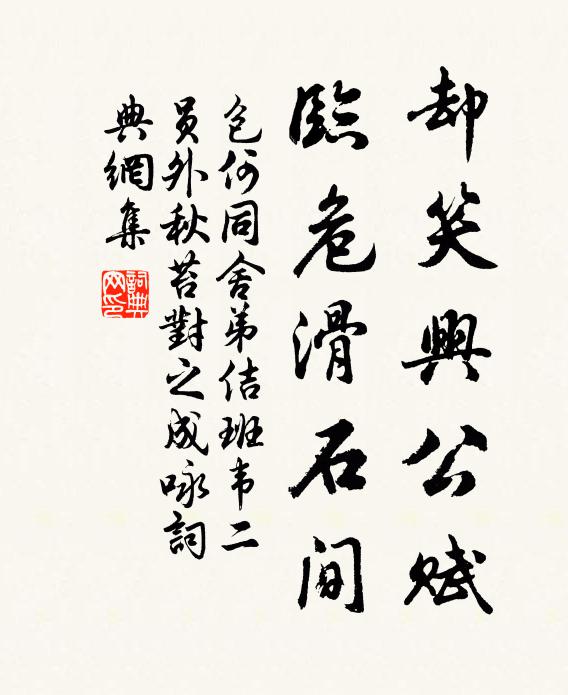 却笑興公賦
臨危滑石間
包何同舍弟佶班韦二
員外秋苔對之成咏詞
典網集
詞典
网印